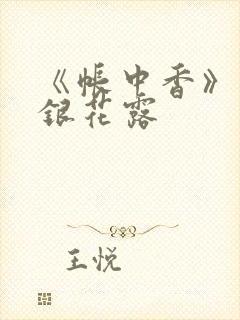 《帐中香》
银花露
王悦